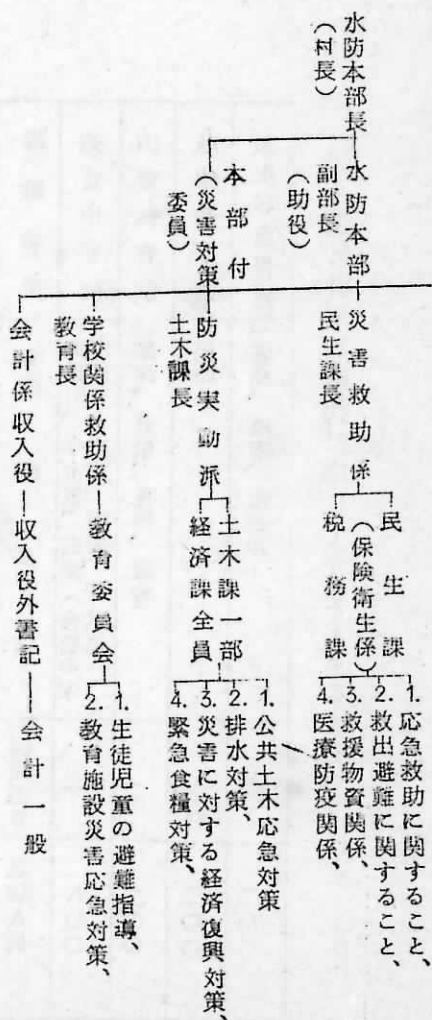 水防本部長
（村長）
水防本部
副部長
（助役）
本部付
（災害対策
委員）
災害救助係
民生課長
民生課
（保険衛生係）
税務課
1.応急救助に関すること、
2.救出避難に関すること、
3.救援物資関係、
4.医療防疫関係、
防災実動派
土木課長
土木課一部
経済課全員
1.公共土木応急対策
2.排水対策、
3.災害に対する経済復興対策、
4.緊急食糧対策、
学校関係救助係
教育長
教育委員会
1.生徒児童の避難指導、
2.教育施設災害応急対策、
会計係収入役
収入役外書記
会計一般